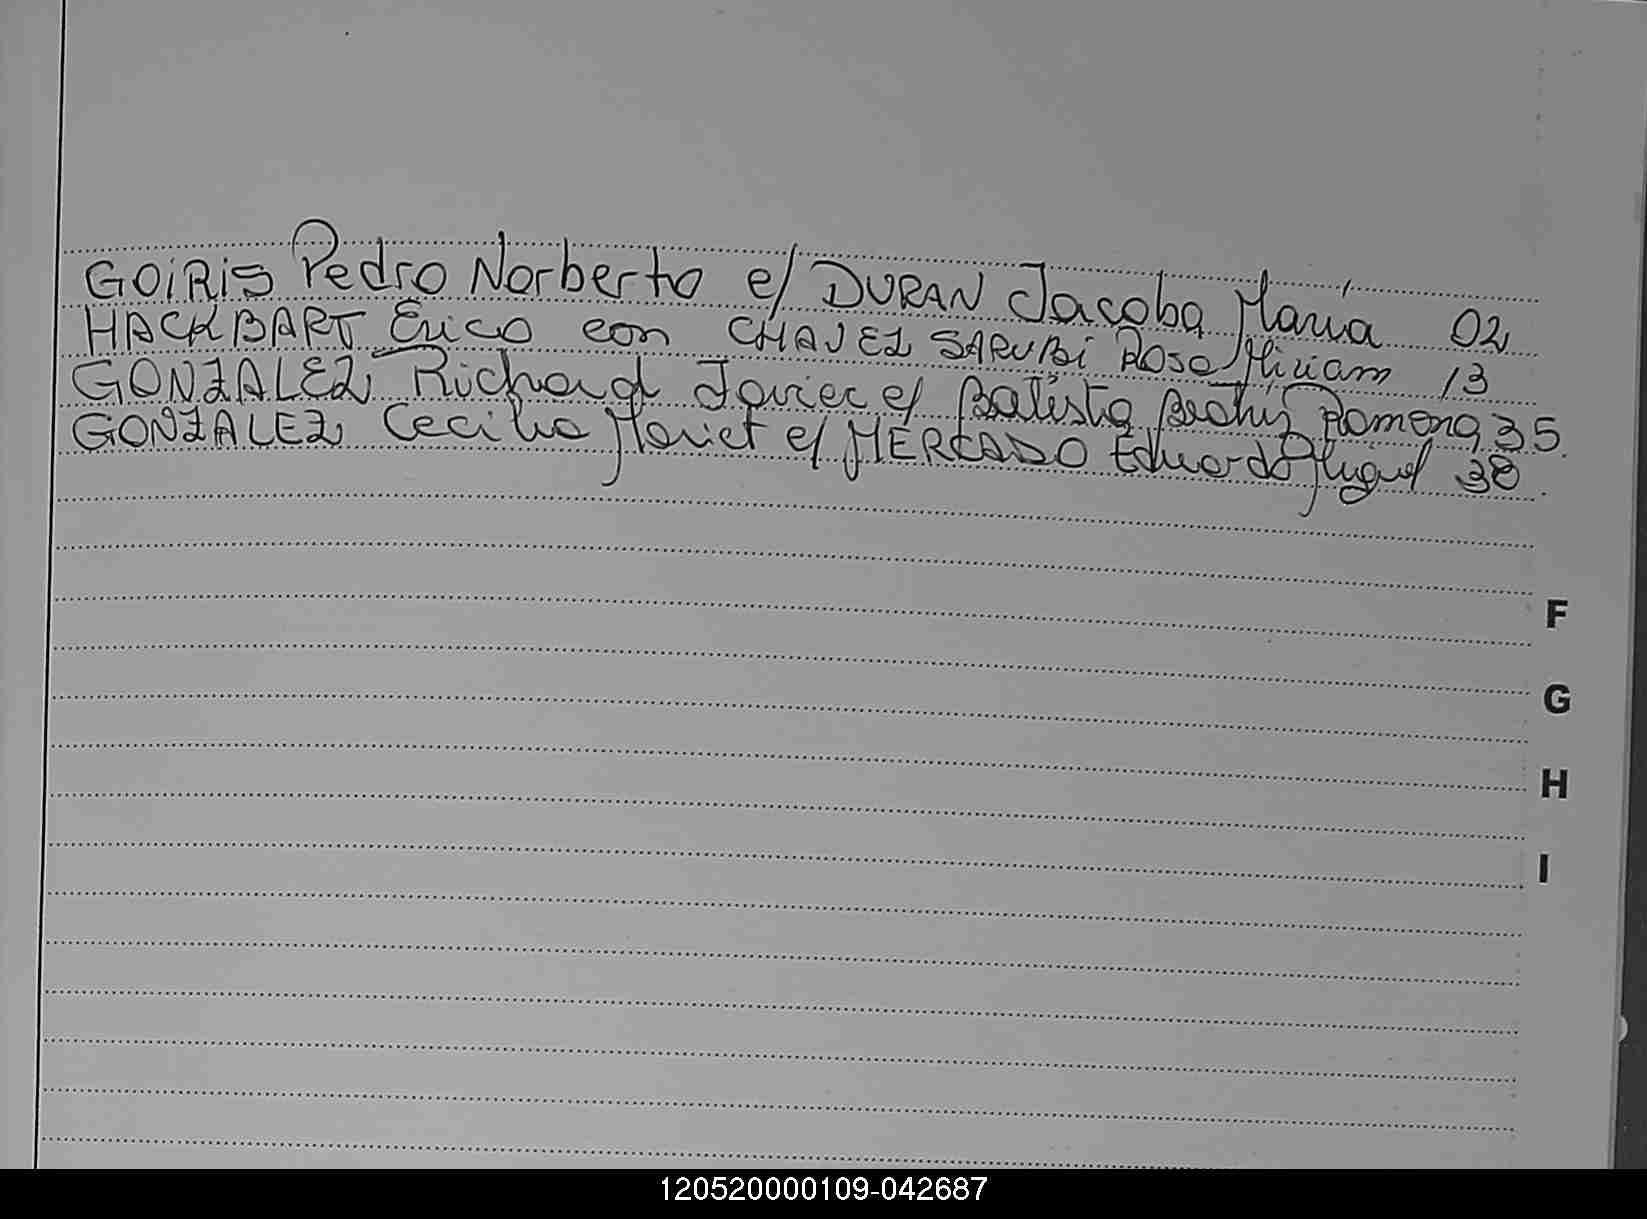 GOIRIS Pedro Norberto c/ DURAN Jacoba María 02
HACKBART Erico con CHAVEZ SARUBi Rosa Miriam 13
GONZALEZ Richard Javier c/ Batista Beatriz Ramona 35
GONZALEZ Cecilia Mariet c/ MERCADO Eduardo Miguel 38
F
G
H
I
120520000109-042687